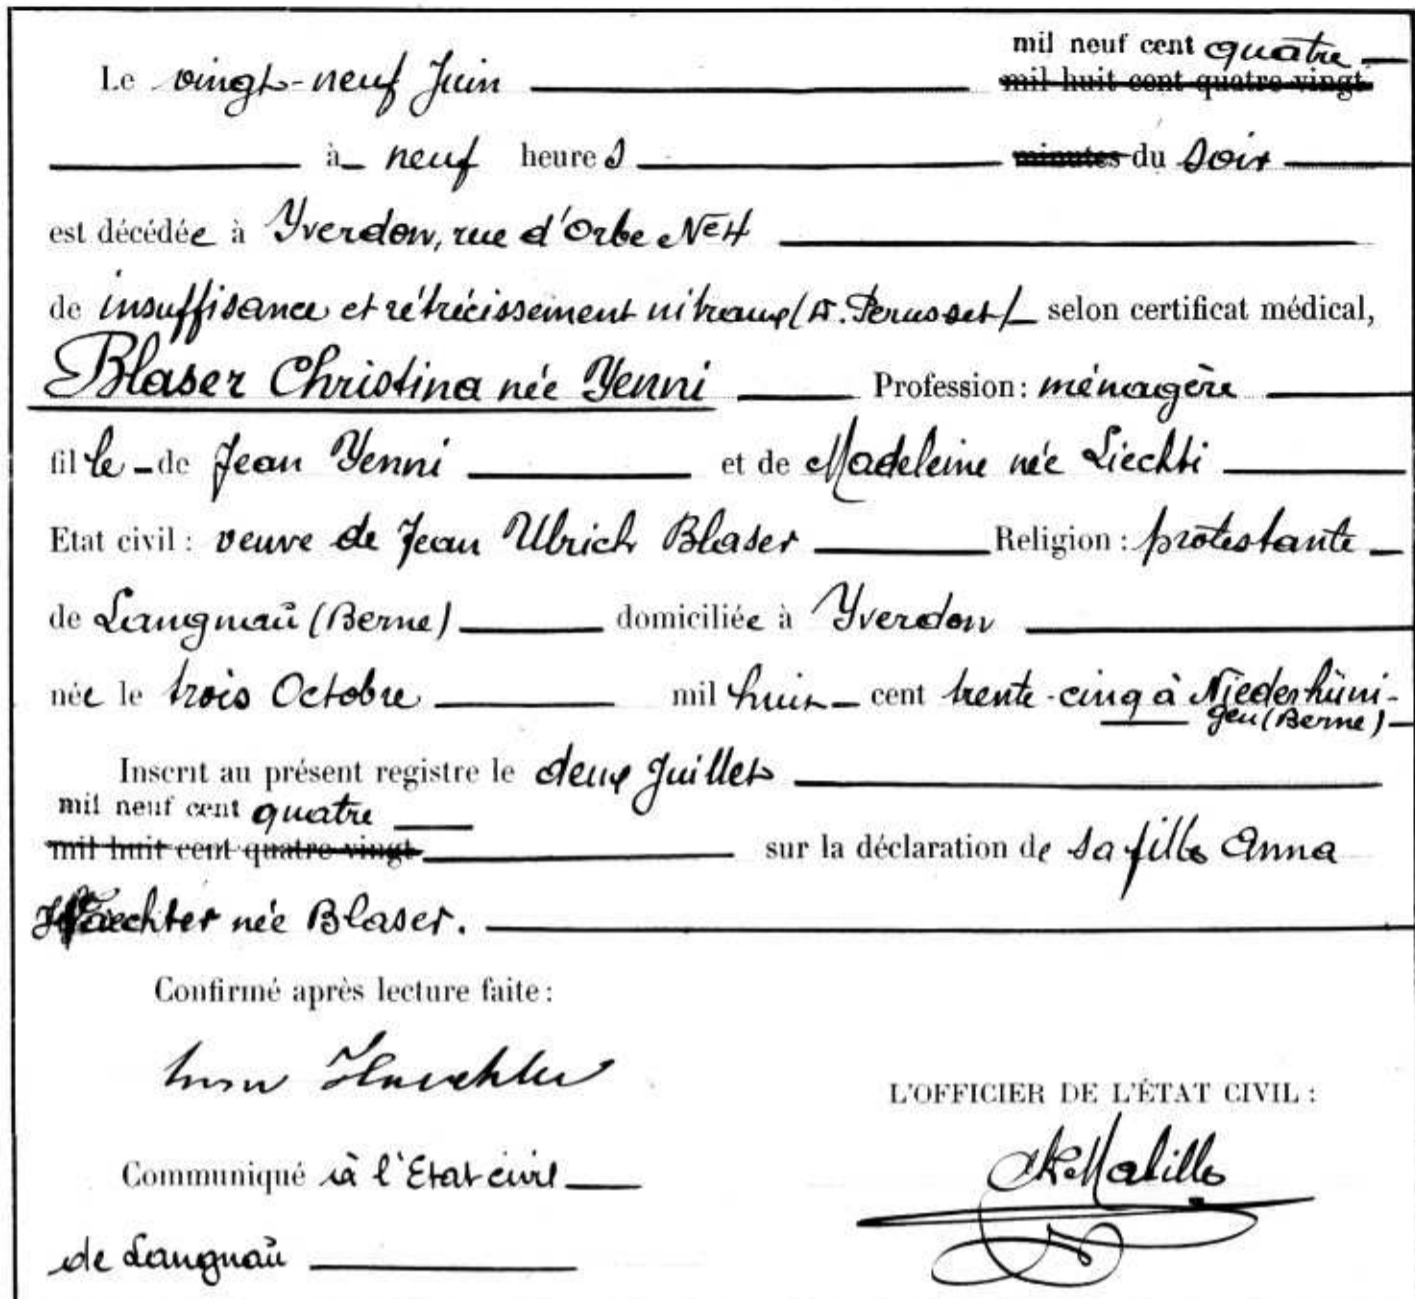 mil neuf cent quatre
Le vingt-neuf Juin mil huit cent quatre-vingt
à neuf heures minutes du soir
est décédée à Yverdon, rue d'Orbe No 4
de insuffisance et rétrécissement mitraux (D. Perusset) selon certificat médical,
Blaser Christina née Yenni Profession: ménagère
fille de Jean Yenni et de Madeleine née Liechti
Etat civil: veuve de Jean Ulrich Blaser Religion: protestante
de Langnaŭ (Berne) domiciliée à Yverdon
née le trois Octobre mil huit cent trente-cinq à Niederhüni-
gen (Berne)
Inscrit au présent registre le deux Juillet
mil neuf cent quatre
mil huit cent quatre-vingt sur la déclaration de sa fille Anna
née Blaser.
Confirmé après lecture faite:
L'OFFICIER DE L'ÉTAT CIVIL:
Communiqué à l'Etat civil
de Langnaŭ